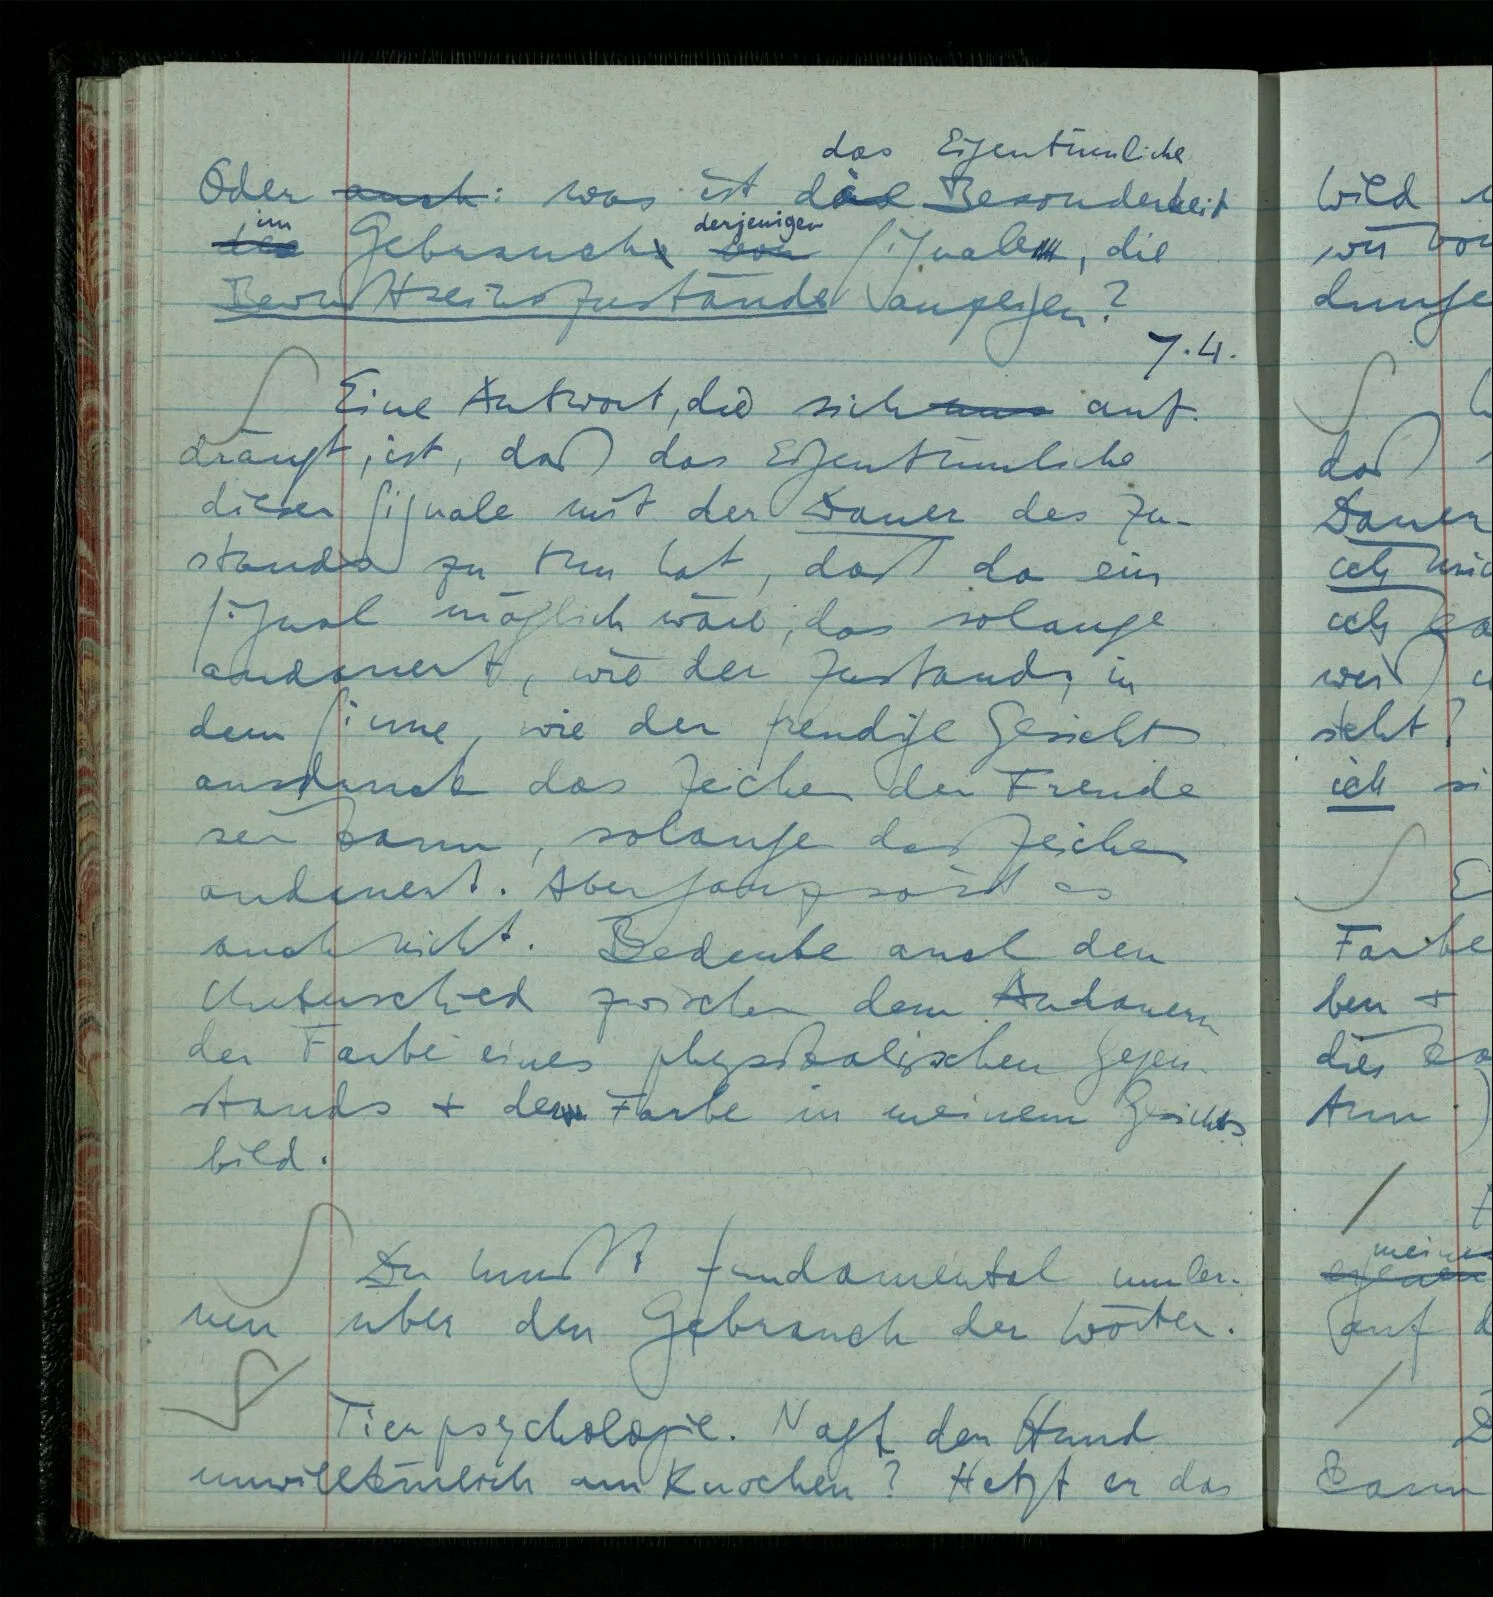 das Eigentümliche
Oder auch: was ist die Besonderheit
im derjenigen
des Gebrauchs von Signalen, die
Bewußtseinszustände anzeigen?
7.4.
Eine Antwort, die sich uns auf-
drängt, ist, daß das Eigentümliche
dieser Signale mit der Dauer des Zu-
stands zu tun hat, daß da ein
Signal möglich wäre, das solange
andauert, wie der Zustand, in
dem Sinne, wie der freudige Gesichts
ausdruck das Zeichen der Freude
sein kann, solange das Zeichen
andauert. Aber ganz so ist es
auch nicht. Bedenke auch den
Unterschied zwischen dem Andauern
der Farbe eines physikalischen Gegen-
stands + der Farbe in meinem Gesichts
bild.
Du mußt fundamental umler-
nen über den Gebrauch der Wörter.
Tierpsychologie. Nagt der Hund
unwillkürlich am Knochen? Hetzt er das
Wild
wir
daß
Dauer
ich
ich
sieht?
ich si
Farbe
ben +
dies
meine
auf d
kann